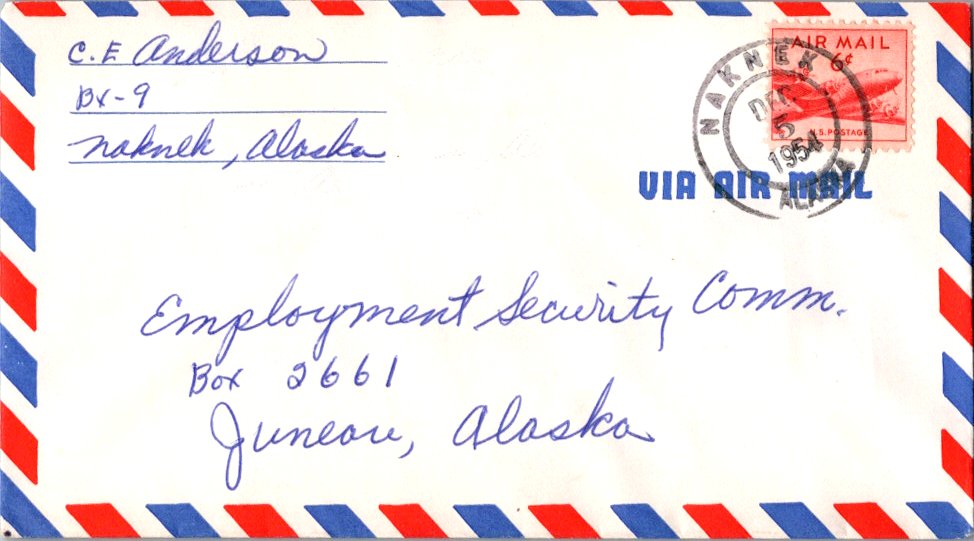 C. E Anderson
Bx-9
Naknek, Alaska
AIR MAIL
6¢
U.S. POSTAGE
NAKNEK
DEC
5
1954
ALASKA
VIA AIR MAIL
Employment Security Comm.
Box 2661
Juneau, Alaska